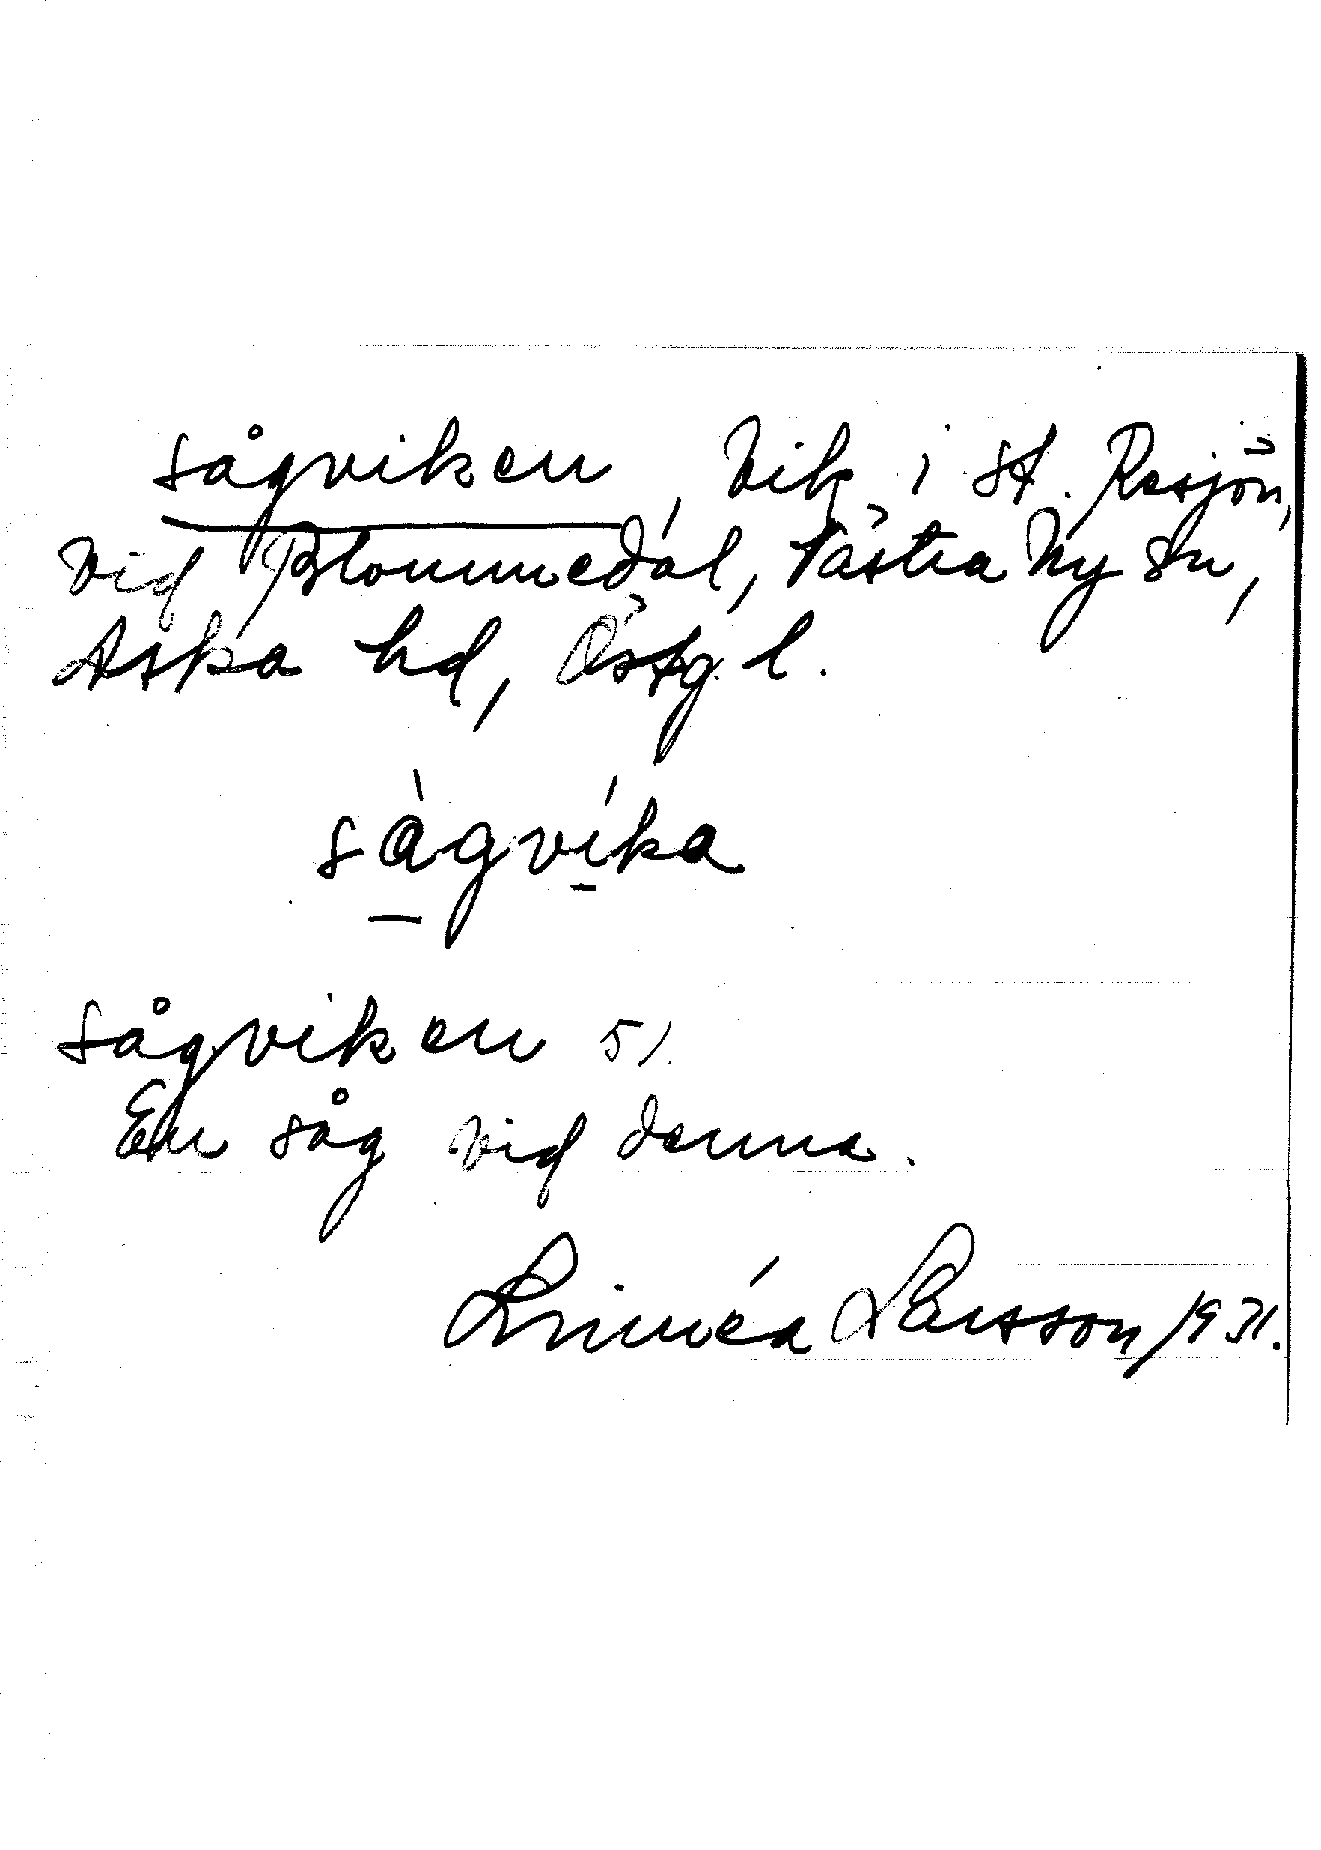 Sågviken, Vik i St. Resjön,
vid Blommedal, Västra Ny sn,
Aska hd, Östg. l.
sàgvíka
Sågviken 51.
En såg vid denna.
Linnéa Larsson 1931.